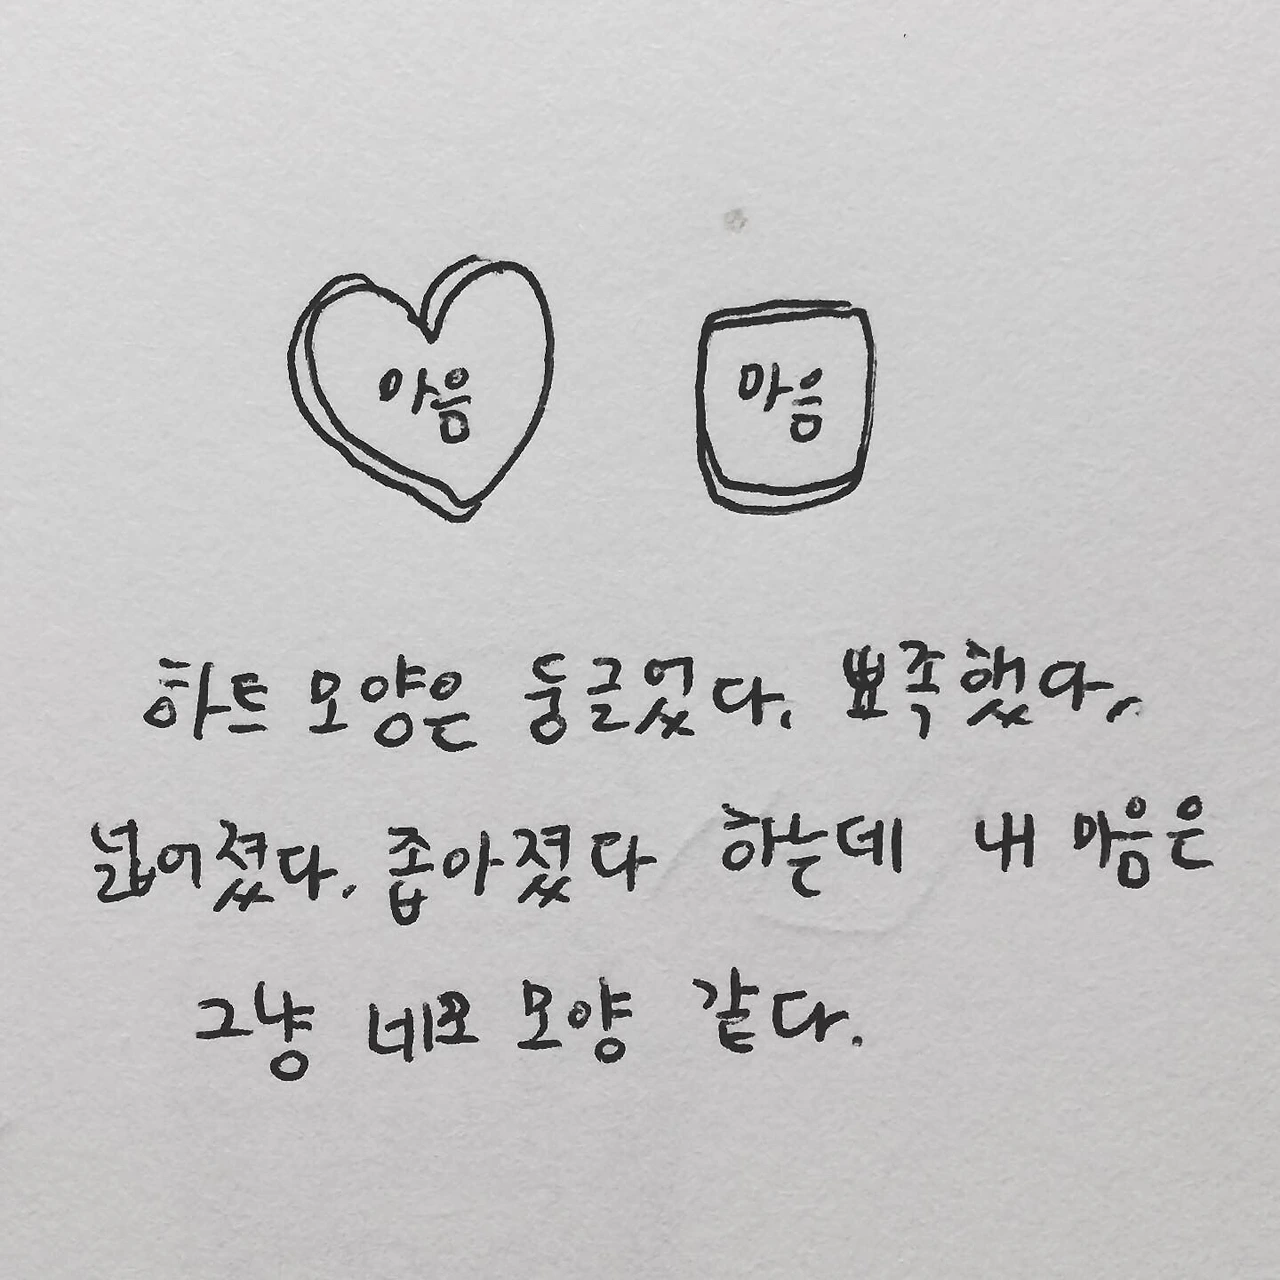 마음 마음
하트 모양은 둥글었다. 뾰족했다,
넓어졌다. 좁아졌다 하는데 내 마음은
그냥 네모 모양 같다.